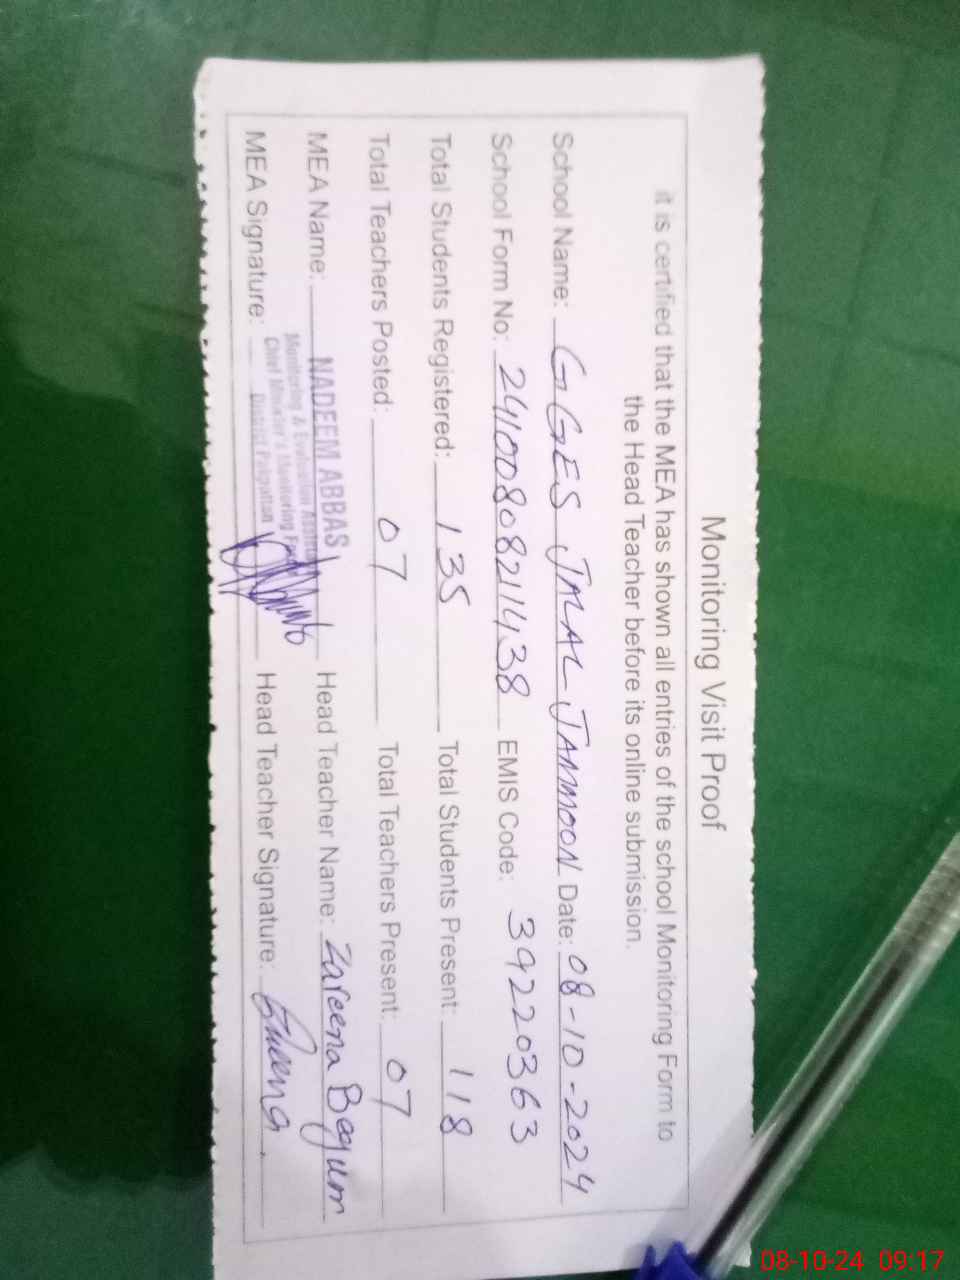 Monitoring Visit Proof
it is certified that the MEA has shown all entries of the school Monitoring Form to
the Head Teacher before its online submission.
School Name: GGES JALAL JAMMOON Date: 08-10-2024
School Form No: 24100808211438 EMIS Code: 39220363
Total Students Registered: 135 Total Students Present: 118
Total Teachers Posted: 07 Total Teachers Present: 07
MEA Name: NADEEM ABBAS Head Teacher Name: Zareena Begum
Monitoring & Evaluation
Chief Minister's Monitoring
District Pakpattan
MEA Signature: Head Teacher Signature:
08-10-24 09:17